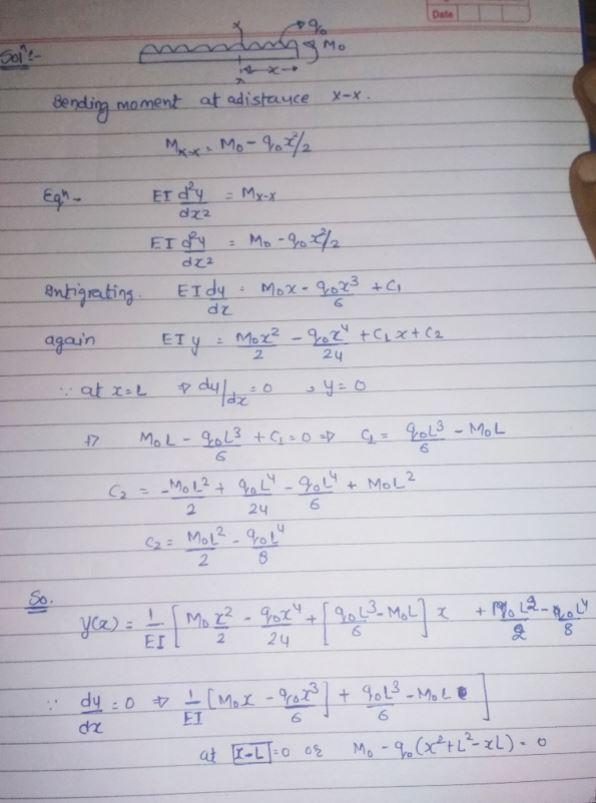 Date
Solⁿ:-
x
q₀
M₀
x
x
Bending moment at a distance x-x.
Mx-x = M₀ - q₀x²/2
Eqⁿ- EI d²y/dx² = Mx-x
EI d²y/dx² = M₀ - q₀x²/2
Intigrating. EI dy/dx = M₀x - q₀x³/6 + C₁
again EI y = M₀x²/2 - q₀x⁴/24 + C₁x + C₂
∵ at x=L ⇒ dy/dx = 0 , y = 0
⇒ M₀L - q₀L³/6 + C₁ = 0 ⇒ C₁ = q₀L³/6 - M₀L
C₂ = -M₀L²/2 + q₀L⁴/24 - q₀L⁴/6 + M₀L²
C₂ = M₀L²/2 - q₀L⁴/8
So.
y(x) = 1/EI [ M₀x²/2 - q₀x⁴/24 + [ q₀L³/6 - M₀L ] x + M₀L²/2 - q₀L⁴/8
∵ dy/dx = 0 ⇒ 1/EI [ M₀x - q₀x³/6 ] + q₀L³/6 - M₀L ]
at x-L = 0 or M₀ - q₀(x²+L²-xL) = 0